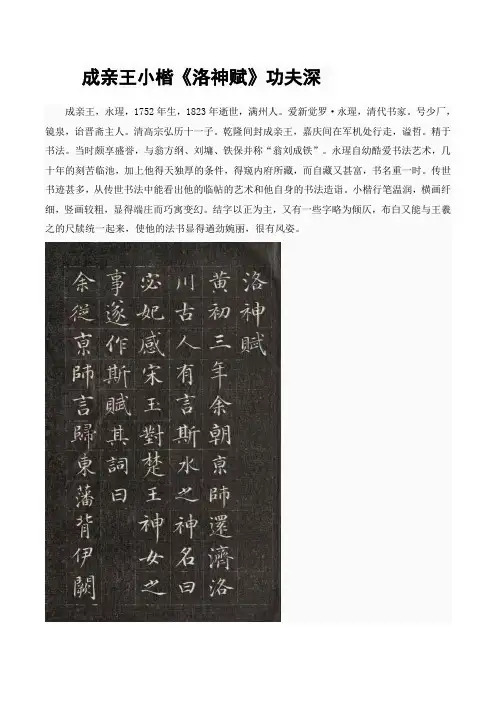 成亲王小楷《洛神赋》功夫深
成亲王，永瑆，1752年生，1823年逝世，满州人。爱新觉罗·永瑆，清代书家。号少厂，
镜泉，诒晋斋主人。清高宗弘历十一子。乾隆间封成亲王，嘉庆间在军机处行走，谥哲。精于
书法。当时颇享盛誉，与翁方纲、刘墉、铁保并称“翁刘成铁”。永瑆自幼酷爱书法艺术，几
十年的刻苦临池，加上他得天独厚的条件，得窥内府所藏，而自藏又甚富，书名重一时。传世
书迹甚多，从传世书法中能看出他的临帖的艺术和他自身的书法造诣。小楷行笔温润，横画纤
细，竖画较粗，显得端庄而巧寓变幻。结字以正为主，又有一些字略为倾仄，布白又能与王羲
之的尺牍统一起来，使他的法书显得遒劲婉丽，很有风姿。
洛神賦
黄初三年余朝京師還濟洛
川古人有言斯水之神名曰
宓妃感宋玉對楚王神女之
事遂作斯賦其詞曰
余從京師言歸東藩背伊闕